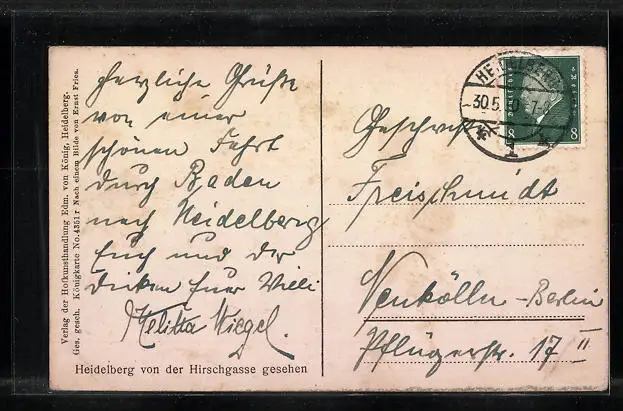 Verlag der Hofkunsthandlung Edm. von König, Heidelberg.
Ges. gesch. Königkarte No. 4351 r Nach einem Bilde von Ernst Fries.
Herzliche Grüße
von einer
schönen Fahrt
durch Baden
nach Heidelberg
Euch und der
Euer Willi
Melitta Wiegel.
Heidelberg von der Hirschgasse gesehen
HEIDELBERG
30.5.30 7-8
1
8 8
Freischmidt
Neukölln-Berlin
Pflügerstr. 17 II